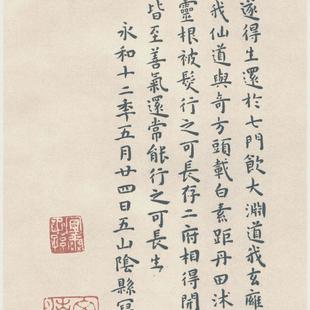 遂得生還於七門飲大淵道我玄雍
我仙道與奇方頭載白素距丹田沐
靈根被髮行之可長存二府相得開
皆至善氣還常能行之可長生
永和十二年五月廿四日五山陰縣寫